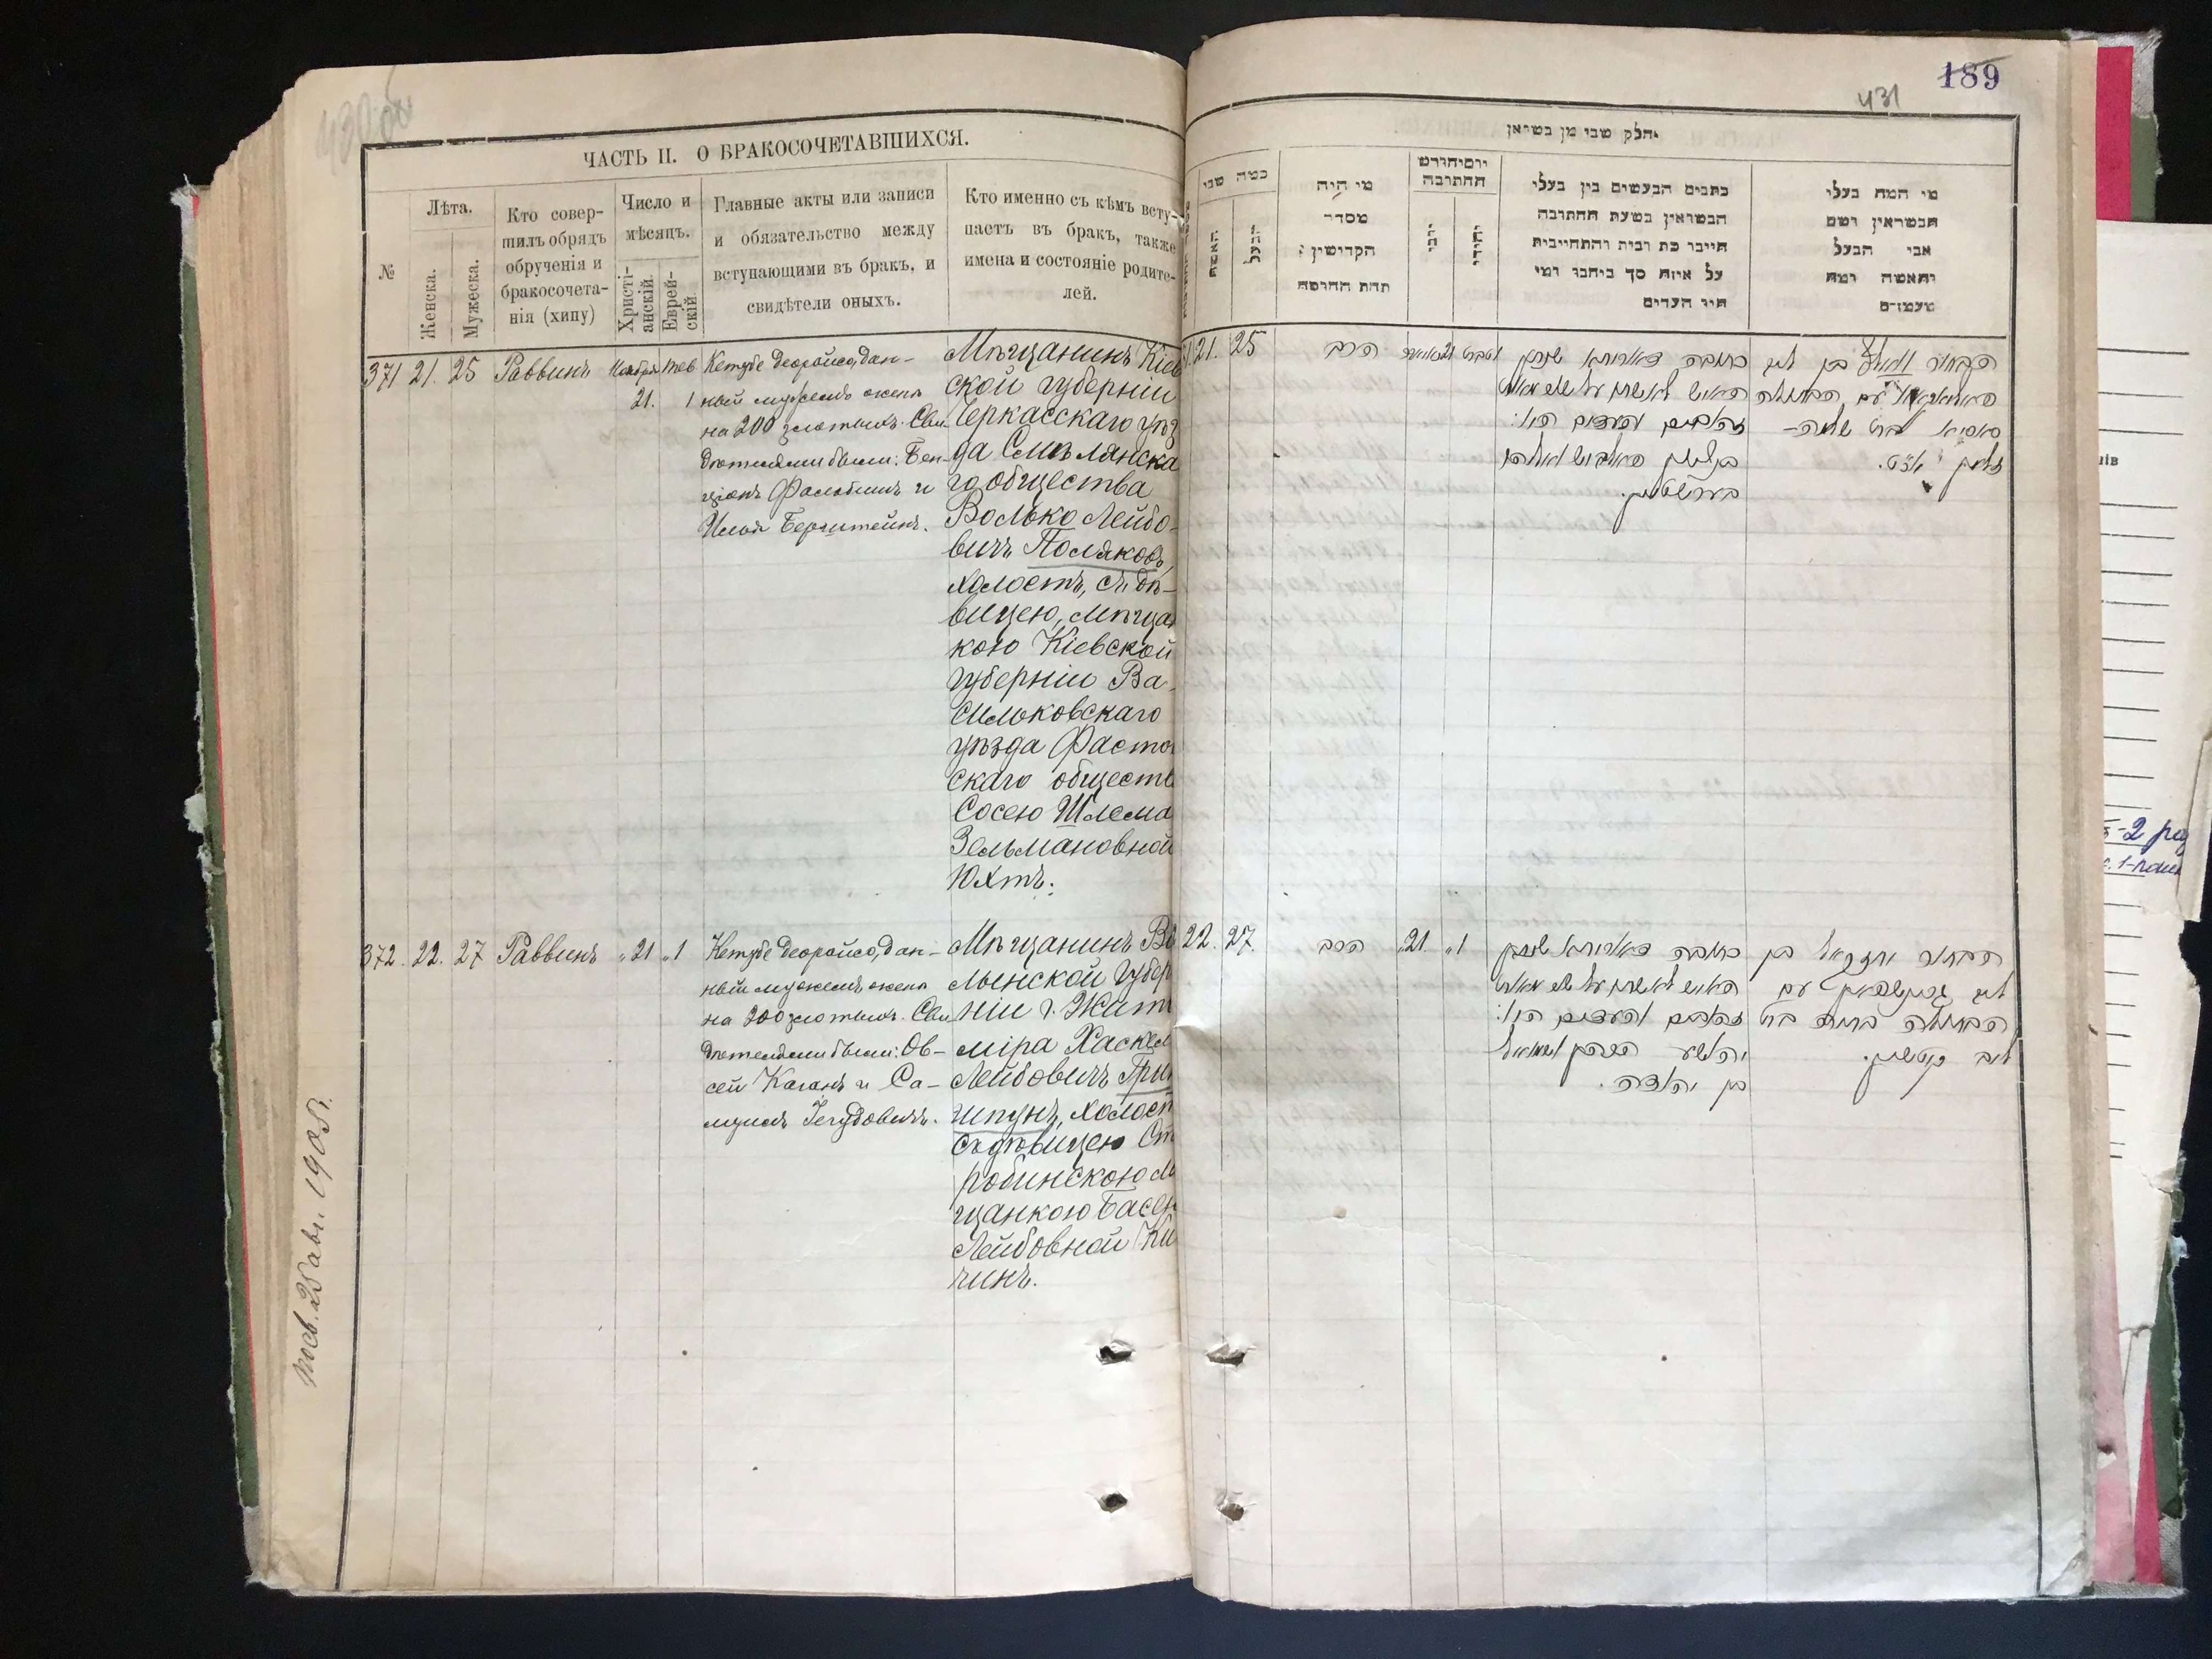 189
431
ЧАСТЬ II. О БРАКОСОЧЕТАВШИХСЯ.
№
Лѣта.
Женска.
Мужеска.
Кто совер-
шилъ обрядъ
обрученія и
бракосочета-
нія (хипу)
Число и
мѣсяцъ.
Христі-
анскій.
Еврей-
скій.
Главные акты или записи
и обязательство между
вступающими въ бракъ, и
свидѣтели оныхъ.
Кто именно съ кѣмъ всту-
паетъ въ бракъ, также
имена и состояніе родите-
лей.
371 21. 25 Раввинъ Ноября 21. Тев 1
Кетубе деорайсо, дан-
ный мужемъ жене
на 200 злотыхъ. Сви-
дѣтелями были: Бен-
ціонъ и
Илья Бернштейнъ.
Мѣщанинъ Кіев
ской губерніи
Черкасскаго уѣз
да Смѣлянска
го общества
Волько Лейбо-
вичъ Поляковъ,
холостъ, съ дѣ-
вицею, мѣщан
кою Кіевской
губерніи Ва-
сильковскаго
уѣзда Фастов
скаго обществ
Сосею Шлема
Зельмановной
Юхтъ.
372. 22. 27 Раввинъ „21 „1
Кетубе деорайсо, дан-
ный мужемъ жене
на 200 злотыхъ. Сви
дѣтелями были: Ов-
сей Каганъ и Са-
муилъ Іегудовичъ.
Мѣщанинъ Во
лынской губер
ніи г. Жит
міра Хаскел
Лейбовичъ Грин
шпунъ, холост
съ дѣвицею Ст
робинскою м
щанкою Басе
Лейбовной Ки
чинъ.
חלק שני מן נשואין
כמה שני
האשה
הבעל
מי היה
מסדר
הקדושין
תחת החופה
יום וחודש
החתונה
יוני
יהודי
כתבים הנעשים בין בעלי
הנשואין בשעת החתונה
חייבו כת ובית והתחייבות
על איזה סך ניתנו ומי
היו העדים
מי המה בעלי
הנשואין ושם
אבי הבעל
והאשה ומה
מעמדם
21. 25
הרב
21
כתובה דאורייתא שנתן
האיש לאשתו על שני מאות
זהובים והעדים היו:
בערנשטיין.
הבחור וואלף בן לייב
פאליאקאוו עם הבתולה
סאסיא בת שלמה-
זלמן יוכט.
22. 27.
הרב
„21. „1
כתובה דאורייתא שנתן
האיש לאשתו על שני מאות
זהובים והעדים היו:
יהושע הכהן ושמואל
בן יהודה.
הבחור יחזקאל בן
לייב גרינשפאן עם
הבתולה בת
לייב